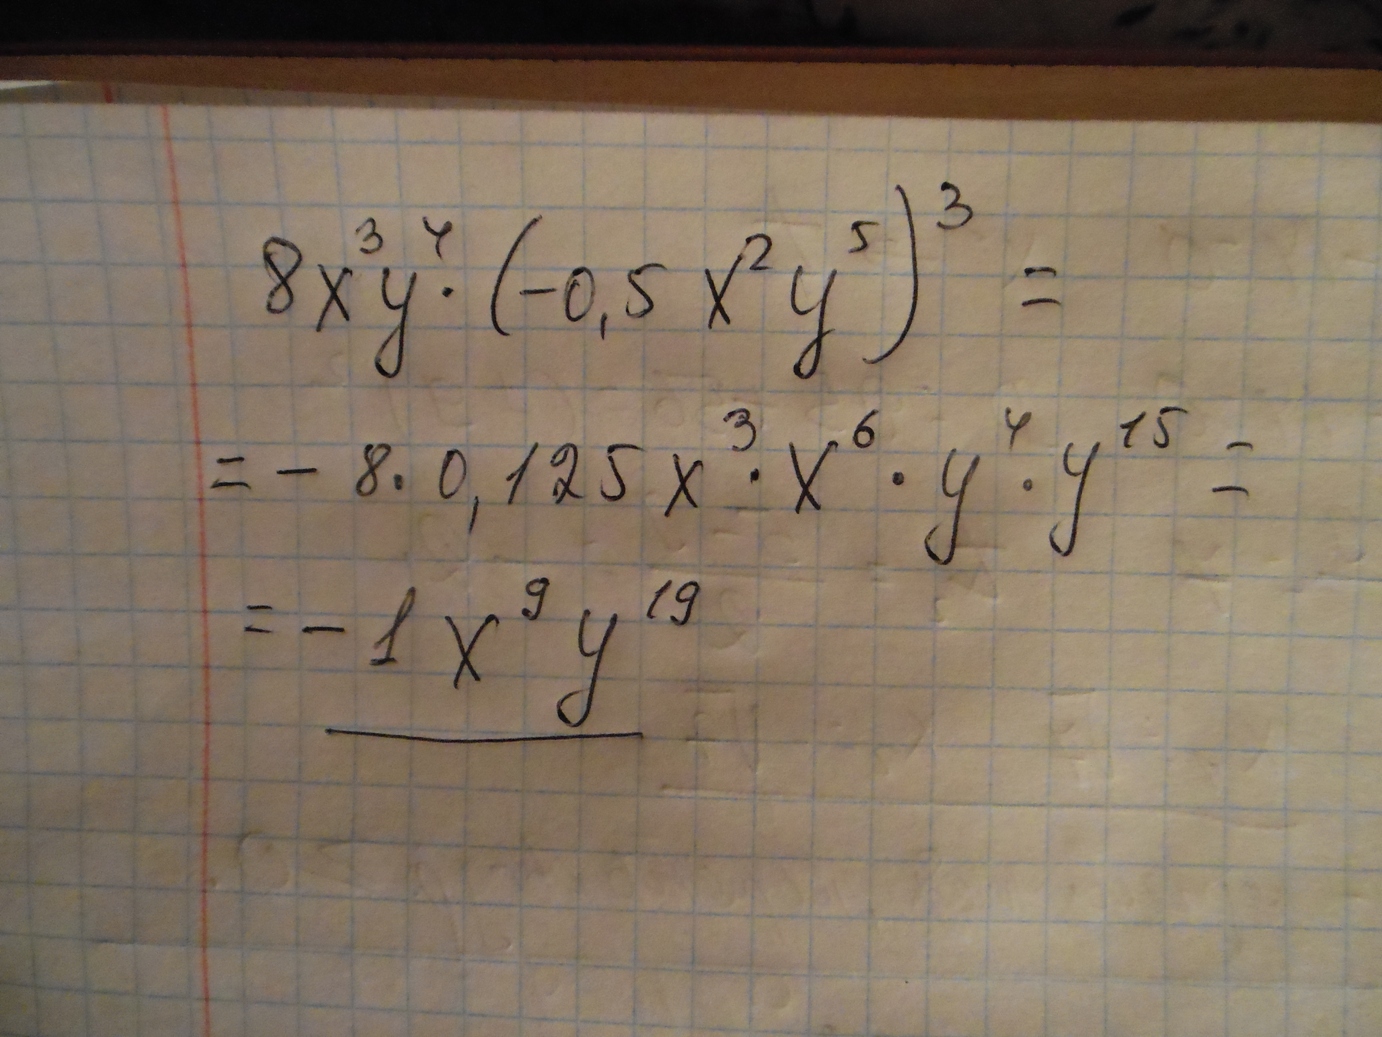 8x³y⁴·(-0,5x²y⁵)³ =
= - 8·0,125x³·x⁶·y⁴·y¹⁵ =
= - 1x⁹y¹⁹